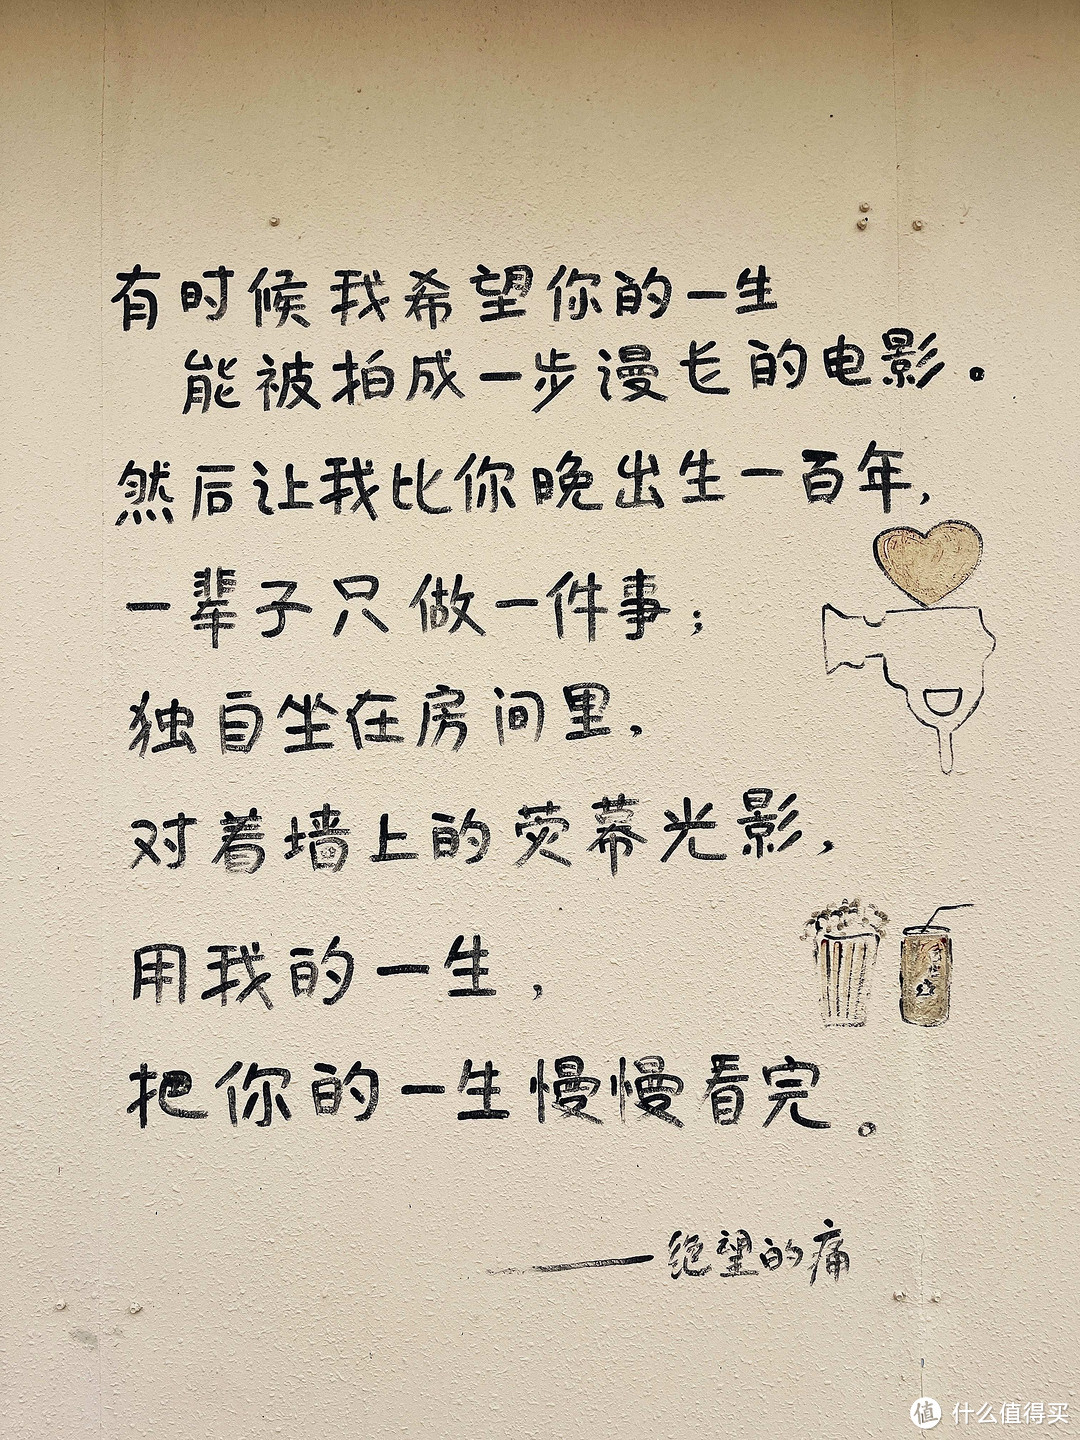 有时候我希望你的一生
能被拍成一步漫长的电影。
然后让我比你晚出生一百年,
一辈子只做一件事;
独自坐在房间里,
对着墙上的荧幕光影,
用我的一生,
把你的一生慢慢看完。
——绝望的痛
值 什么值得买